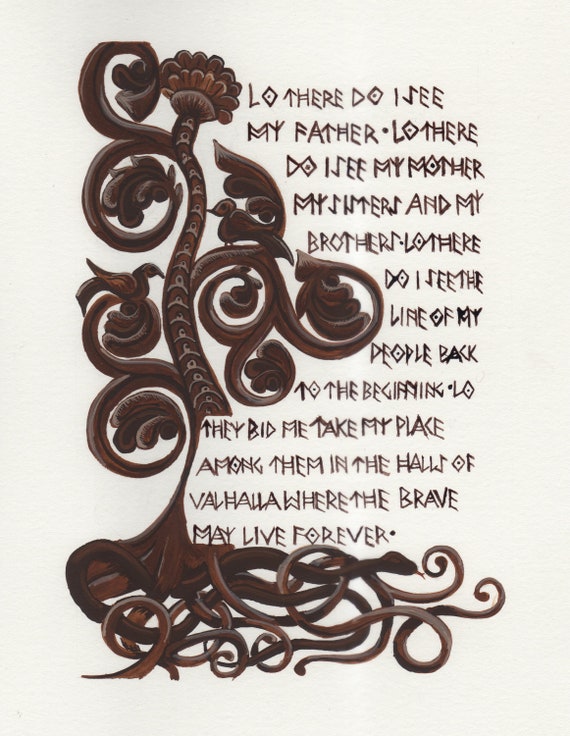 LO THERE DO I SEE
MY FATHER · LO THERE
DO I SEE MY MOTHER
MY SISTERS AND MY
BROTHERS · LO THERE
DO I SEE THE
LINE OF MY
PEOPLE BACK
TO THE BEGINNING · LO
THEY BID ME TAKE MY PLACE
AMONG THEM IN THE HALLS OF
VALHALLA WHERE THE BRAVE
MAY LIVE FOREVER ·